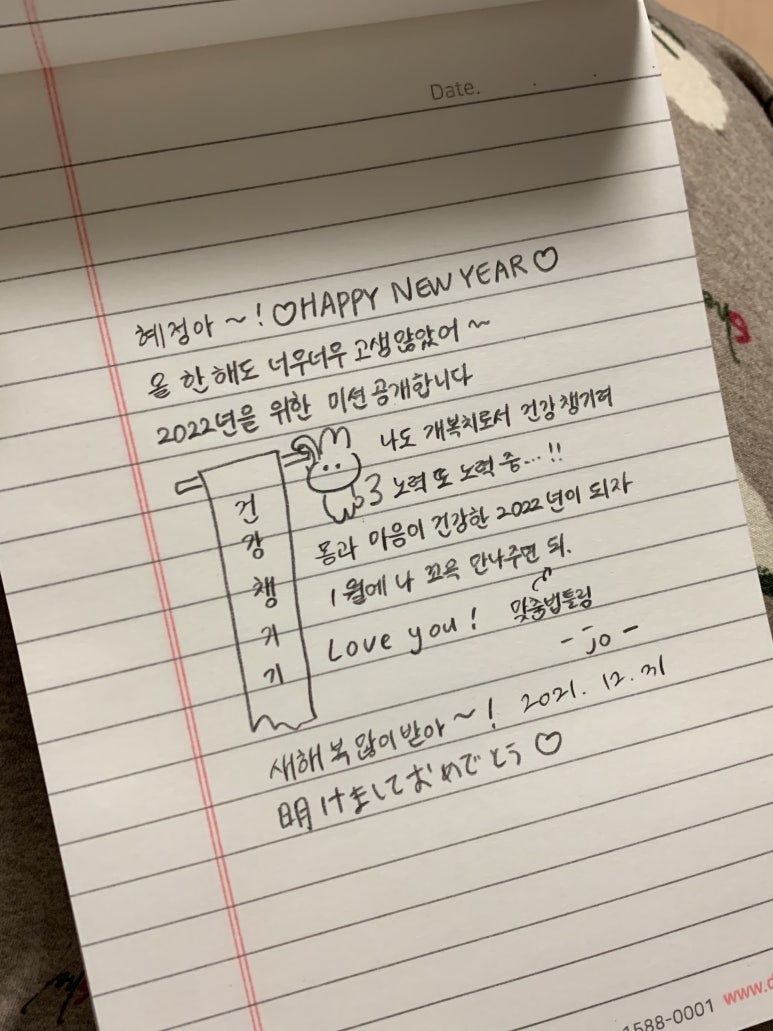 Date.
혜정아 ~! ♡HAPPY NEW YEAR♡
올 한해도 너무너무 고생많았어 ~
2022년을 위한 미션공개합니다
나도 개복치로서 건강챙기려
노력 또 노력 중...!!
건강챙기기
몸과 마음이 건강한 2022년이 되자
1월에 나 꼬옥 만나주면 되.
맞춤법틀림
Love you!
- jo -
새해 복 많이받아~! 2021. 12. 31
明けましておめでとう ♡
1588-0001 www.d